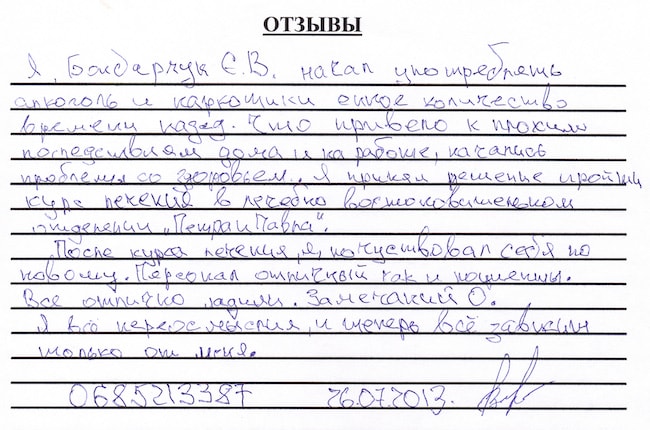 ОТЗЫВЫ
Я, Бондарчук Є.В. начал употреблять
алкоголь и наркотики енное количество
времени назад. Что привело к плохим
последствиям дома и на работе, начались
проблемы со здоровьем. Я принял решение пройти
курс лечения в лечебно восстановительном
отделении „Петра и Павла".
После курса лечения, я почуствовал себя по
новому. Персонал отличный так и пациенты.
Все отлично ладили. Замечаний О.
Я всё переосмыслил, и теперь всё зависит
только от меня.
0685213387 26.07.2013.